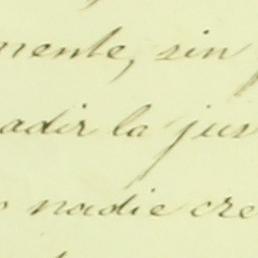 mente, sin
adir la jus
nadie cre